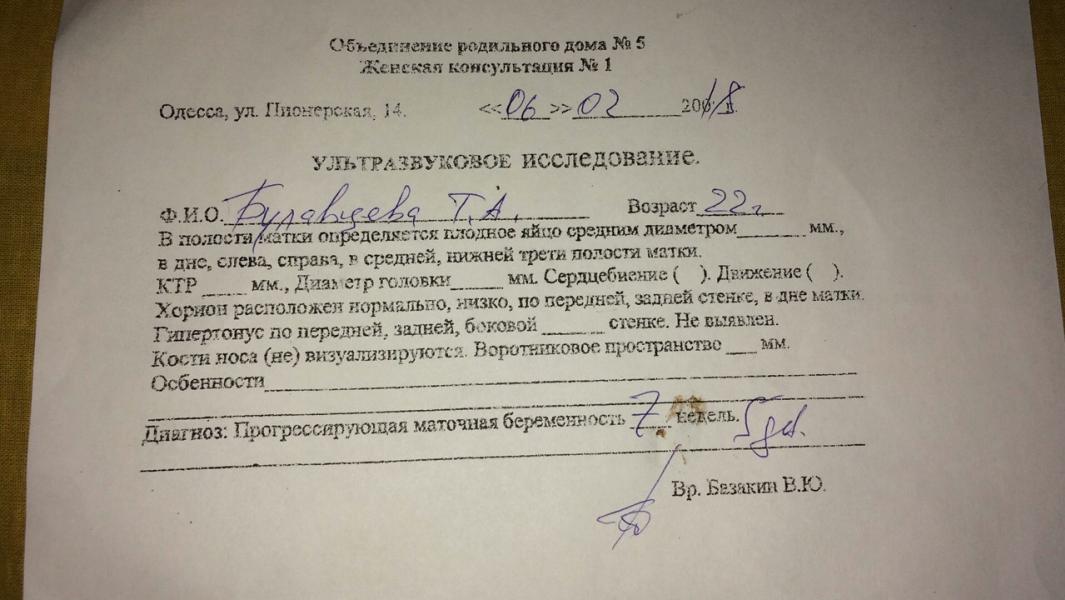 Объединение родильного дома № 5
Женская консультация № 1
Одесса, ул. Пионерская, 14. <<06>> 02 2018 г.
УЛЬТРАЗВУКОВОЕ ИССЛЕДОВАНИЕ.
Ф.И.О. Булавцева Т.А. Возраст 22 г.
В полости матки определяется плодное яйцо средним диаметром______ мм.,
в дне, слева, справа, в средней, нижней трети полости матки.
КТР ____ мм., Диаметр головки_____ мм. Сердцебиение ( ). Движение ( ).
Хорион расположен нормально, низко, по передней, задней стенке, в дне матки.
Гипертонус по передней, задней, боковой ______ стенке. Не выявлен.
Кости носа (не) визуализируются. Воротниковое пространство ___ мм.
Особенности
Диагноз: Прогрессирующая маточная беременность 7 недель. 5 дн.
Вр. Базакин В.Ю.